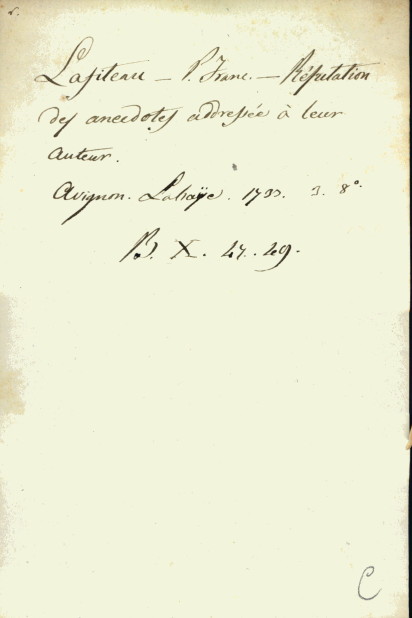 Lafiteau — P. Franc. — Réfutation
des anecdotes addressée à leur
auteur.
Avignon. Labaÿe. 1733. 3. 8°.
B. X. 47. 49.
C